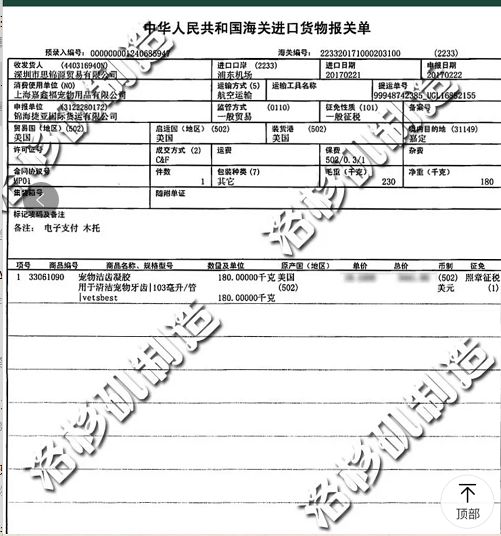 中华人民共和国海关进口货物报关单
预录入编号: 000000001240685947 海关编号: 223320171000203100 (2233)
收发货人 (440316940N) 进口口岸 (2233) 进口日期 申报日期
深圳市思锦源贸易有限公司 浦东机场 20170221 20170222
消费使用单位 (NO) 运输方式 (5) 运输工具名称 提运单号
上海嘉鑫福宠物用品有限公司 航空运输 99948742385_UGL16982155
申报单位 (K3122280172) 监管方式 (0110) 征免性质 (101) 备案号
锦海捷亚国际货运有限公司 一般贸易 一般征税
贸易国 (地区) (502) 启运国 (地区) (502) 装货港 (502) 境内目的地 (31149)
美国 美国 美国 嘉定
许可证号 成交方式 (2) 运费 保费 杂费
C&F 502/0.3/1
合同协议号 件数 包装种类 (7) 毛重 (千克) 净重 (千克)
MP01 1 其它 230 180
集装箱号 随附单证
标记唛码及备注
备注: 电子支付 木托
项号 商品编号 商品名称、规格型号 数量及单位 原产国 (地区) 单价 总价 币制 征免
1 33061090 宠物洁齿凝胶 180.00000千克 美国 (502) 照章征税
用于清洁宠物牙齿|103毫升/管 (502) 美元 (1)
|vetsbest 180.00000千克
洛杉矶制造
洛杉矶制造
洛杉矶制造
洛杉矶制造
顶部